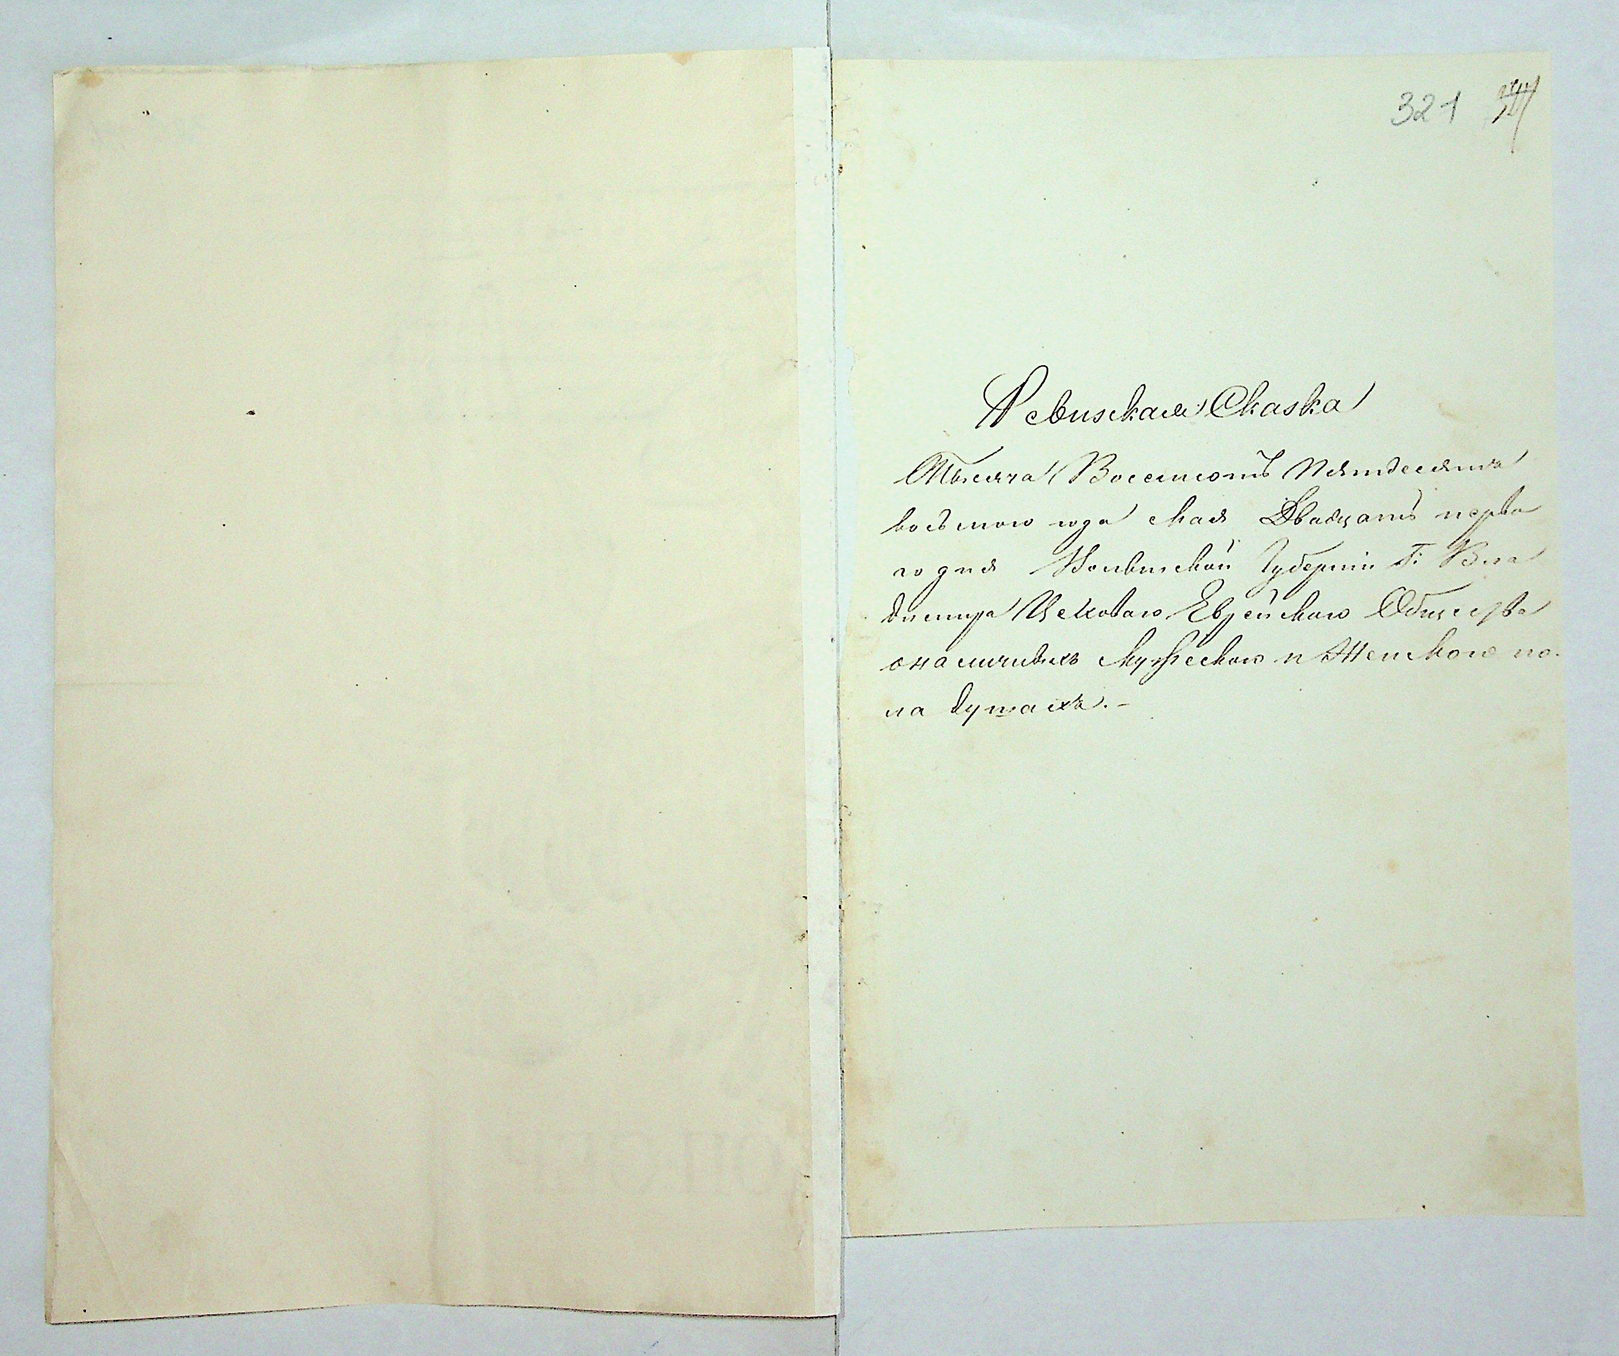 321
Ревизская Сказка
Тысяча Восемсотъ Пятдесятъ
восьмого года Мая Двадцать перва
го дня Волынской Губерніи Г: Вла
димира Цеховаго Еврейскаго Общества
оналичныхъ Мужескаго и Женскаго по
ла душахъ.-